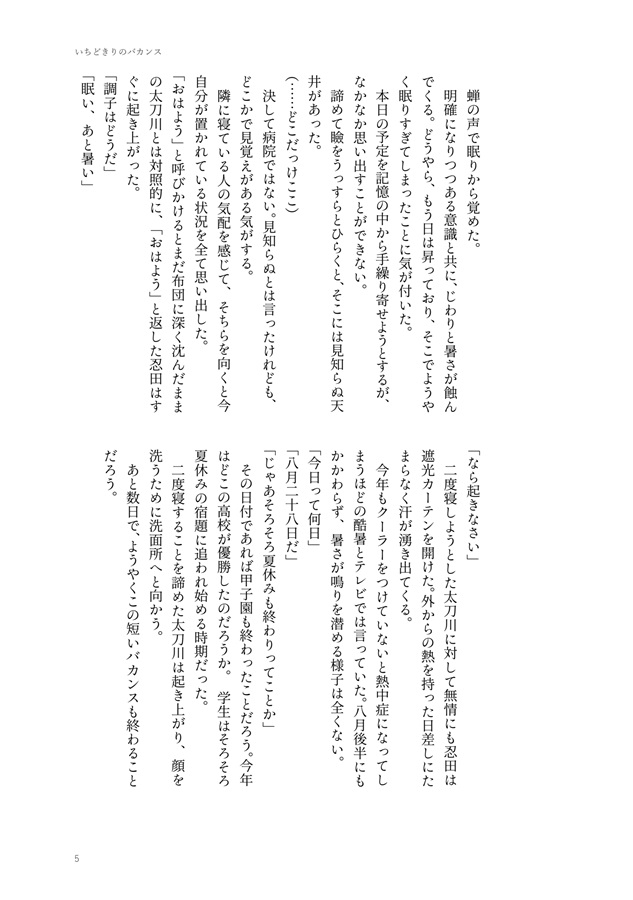 いちどきりのバカンス
　蝉の声で眠りから覚めた。
　明確になりつつある意識と共に、じわりと暑さが蝕ん
でくる。どうやら、もう日は昇っており、そこでようや
く眠りすぎてしまったことに気が付いた。
　本日の予定を記憶の中から手繰り寄せようとするが、
なかなか思い出すことができない。
　諦めて瞼をうっすらとひらくと、そこには見知らぬ天
井があった。
（……どこだっけここ）
　決して病院ではない。見知らぬとは言ったけれども、
どこかで見覚えがある気がする。
　隣に寝ている人の気配を感じて、そちらを向くと今
自分が置かれている状況を全て思い出した。
「おはよう」と呼びかけるとまだ布団に深く沈んだまま
の太刀川とは対照的に、「おはよう」と返した忍田はす
ぐに起き上がった。
「調子はどうだ」
「眠い、あと暑い」
「なら起きなさい」
　二度寝しようとした太刀川に対して無情にも忍田は
遮光カーテンを開けた。外からの熱を持った日差しにた
まらなく汗が湧き出てくる。
　今年もクーラーをつけていないと熱中症になってし
まうほどの酷暑とテレビでは言っていた。八月後半にも
かかわらず、暑さが鳴りを潜める様子は全くない。
「今日って何日」
「八月二十八日だ」
「じゃあそろそろ夏休みも終わりってことか」
　その日付であれば甲子園も終わったことだろう。今年
はどこの高校が優勝したのだろうか。　学生はそろそろ
夏休みの宿題に追われ始める時期だった。
　二度寝することを諦めた太刀川は起き上がり、顔を
洗うために洗面所へと向かう。
　あと数日で、ようやくこの短いバカンスも終わること
だろう。
5